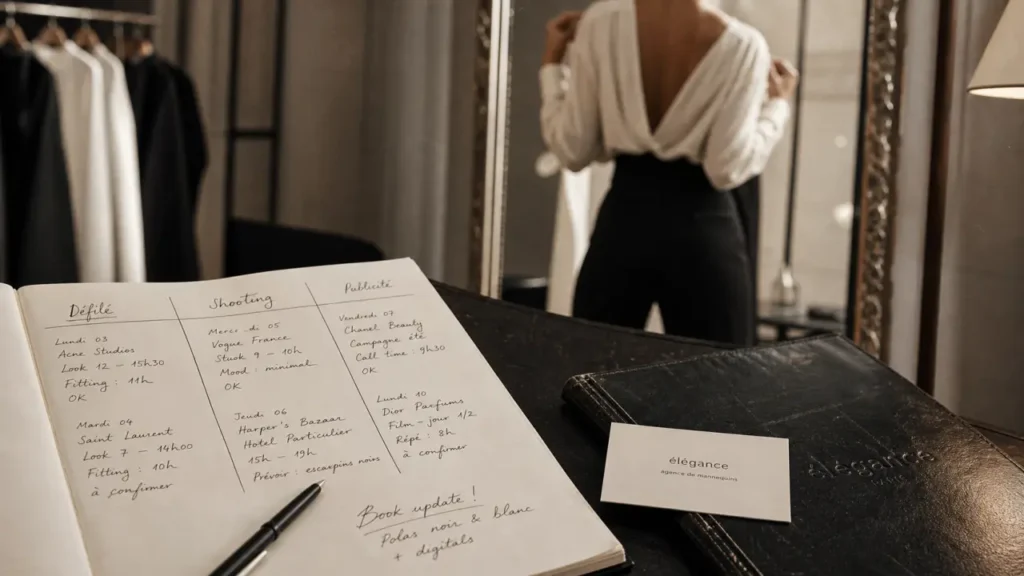 Défilé
Lundi 03
Acne Studios
Look 12 – 15h30
Fitting : 11h
OK
Mardi 04
Saint Laurent
Look 7 – 14h00
Fitting : 10h
à confirmer
Shooting
Mercredi 05
Vogue France
9 – 10h
Mood : minimal
OK
Jeudi 06
Harper's Bazaar
Hotel Particulier
15h – 19h
Prévoir : escarpins noirs
Publicité
Vendredi 07
Chanel Beauty
Campagne été
Call time : 9h30
OK
Lundi 10
Dior Parfums
Film – jour 1/2
Répé : 8h
à confirmer
Book update !
Polas noir & blanc
+ digitals
élégance
agence de mannequins
élégance